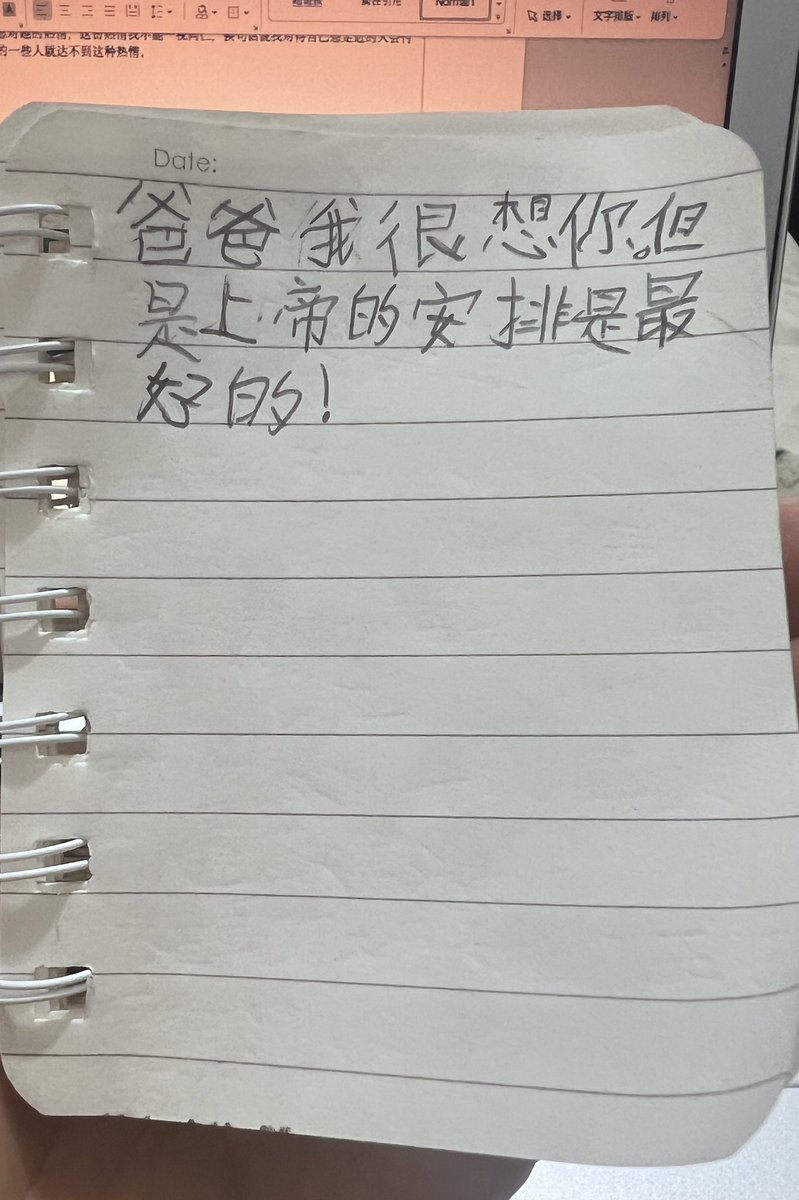 Normal1
选择
文字排版
排列
的一些人就达不到这种热情。
Date:
爸爸我很想你。但
是上帝的安排是最
好的！